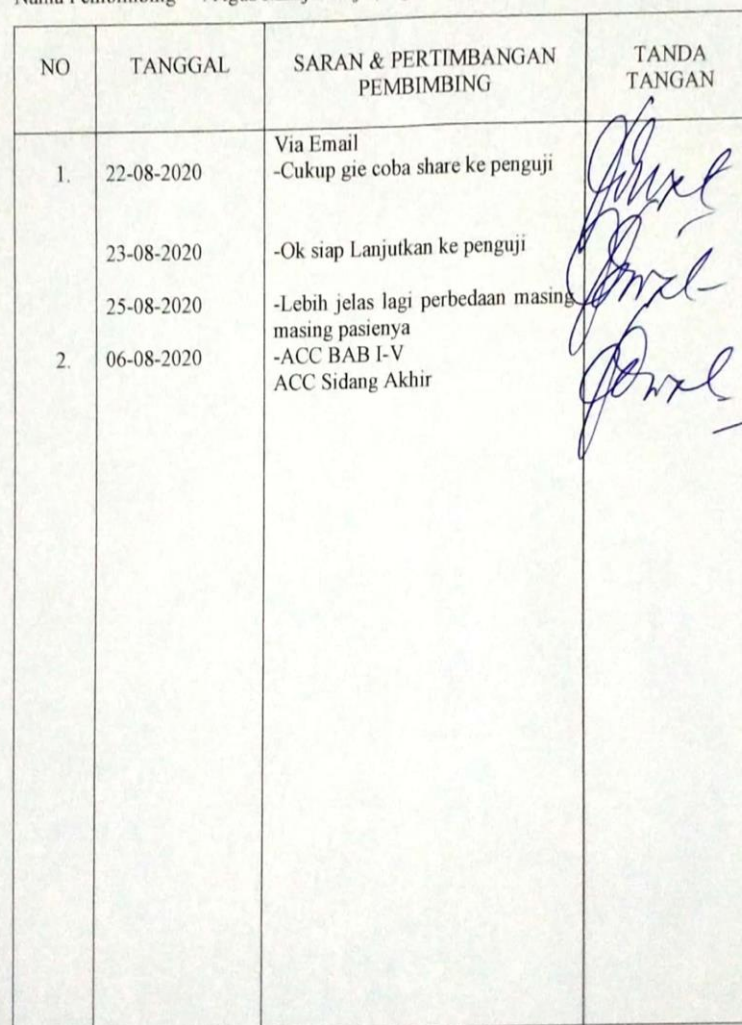 NO TANGGAL SARAN & PERTIMBANGAN PEMBIMBING TANDA TANGAN
Via Email
1. 22-08-2020 -Cukup gie coba share ke penguji
23-08-2020 -Ok siap Lanjutkan ke penguji
25-08-2020 -Lebih jelas lagi perbedaan masing
masing pasienya
2. 06-08-2020 -ACC BAB I-V
ACC Sidang Akhir